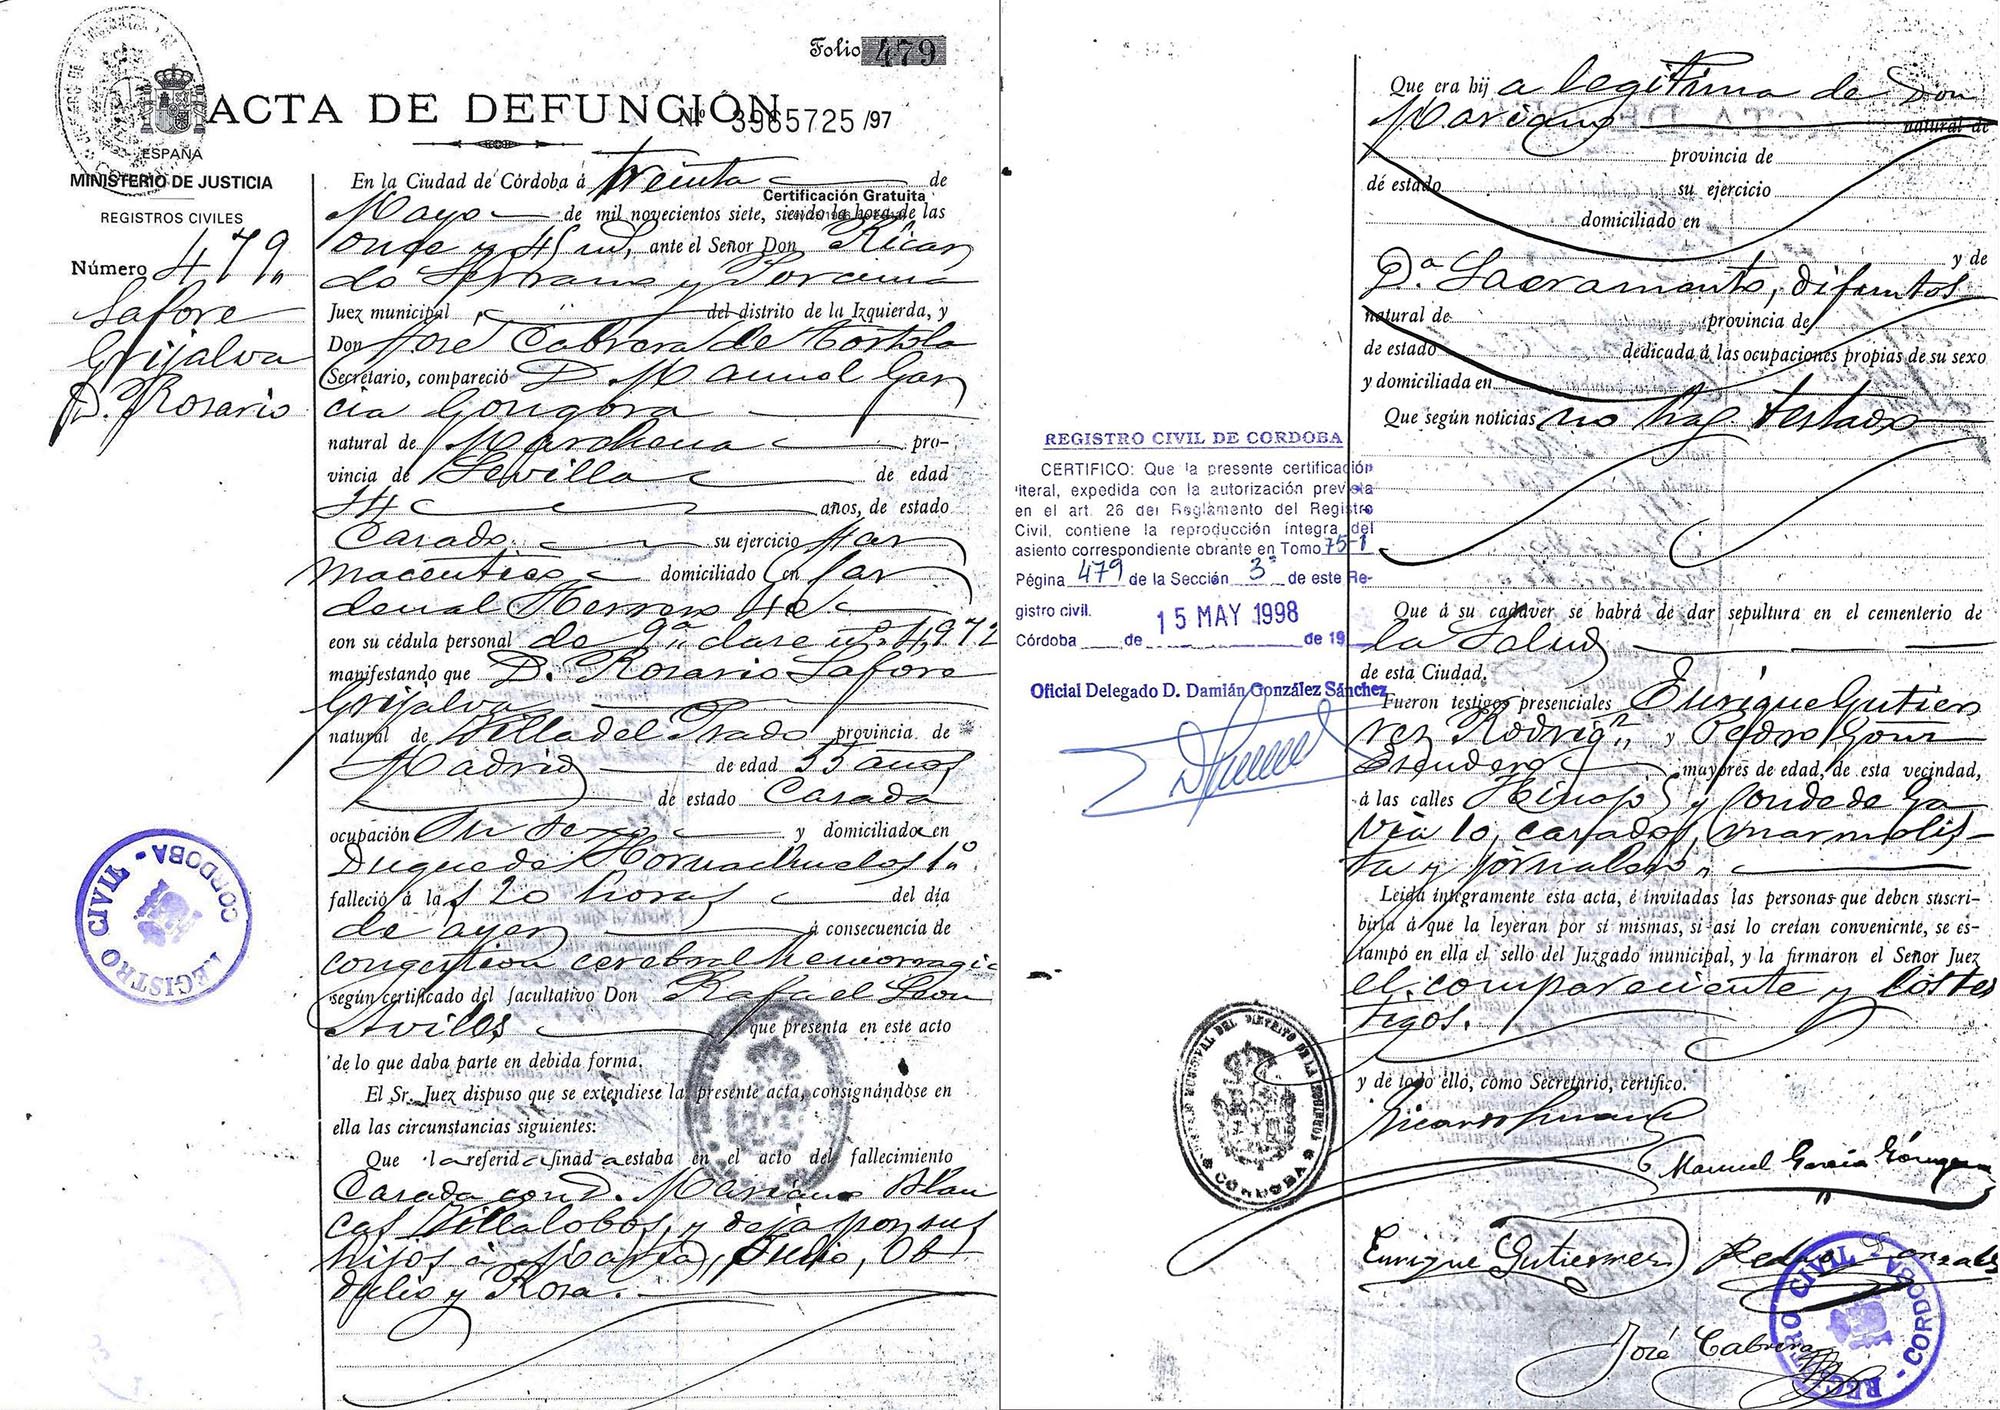 Folio 479
ACTA DE DEFUNCIÓN
Nº 3985725 /97
ESPAÑA
MINISTERIO DE JUSTICIA
REGISTROS CIVILES
Número 479
Lafore
Grijalva
Dª Rosario
En la Ciudad de Córdoba á treinta de
Certificación Gratuita
Mayo de mil novecientos siete, siendo la hora de las
once y 45 ms, ante el Señor Don Ricar
do Serrano y
Juez municipal del distrito de la Izquierda, y
Don José Cabrera de
Secretario, compareció D. Manuel Gar
cia Gongora
natural de Marchena pro-
vincia de Sevilla de edad
44 años, de estado
Casado su ejercicio Far
maceutico domiciliado en Car
denal Herrero
con su cédula personal de 9ª clase nº 4,972
manifestando que Dª Rosario Lafore
Grijalva
natural de Villa del Prado provincia de
Madrid de edad 55 años
de estado Casada
ocupación Su sexo y domiciliada en
Duque de Hornachuelos 1º
falleció á las 20 horas del día
de ayer á consecuencia de
congestion cerebral hemorragica
según certificado del facultativo Don Rafael Leon
Aviles que presenta en este acto
de lo que daba parte en debida forma.
El Sr. Juez dispuso que se extendiese la presente acta, consignándose en
ella las circunstancias siguientes:
Que la referida finada estaba en el acto del fallecimiento
Casada con D. Mariano Blan
cas Villalobos, y deja por sus
hijos á Maria, Julio, Ob
dulio y Rosa.
REGISTRO CIVIL - CORDOBA -
Que era hija legitima de Don
Mariano natural de
provincia de
dé estado su ejercicio
domiciliado en
y de
Dª Sacramento, difuntos
natural de provincia de
de estado dedicada á las ocupaciones propias de su sexo
y domiciliada en
Que según noticias no ha testado
REGISTRO CIVIL DE CORDOBA
CERTIFICO: Que la presente certificación
literal, expedida con la autorización prevista
en el art. 26 del Reglamento del Registro
Civil, contiene la reproducción íntegra del
asiento correspondiente obrante en Tomo 75-1
Página 479 de la Sección 3ª de este Re-
gistro civil.
15 MAY 1998
Córdoba de de 19
Oficial Delegado D. Damián González Sánchez
Que á su cadáver se habrá de dar sepultura en el cementerio de
la Salud
de esta Ciudad.
Fueron testigos presenciales Enrique Gutier
rez Rodrigz y Pedro Gonz
Escudero mayores de edad, de esta vecindad,
á las calles y Conde de Ga
via 10, casados, marmolis-
ta y jornalero
Leída íntegramente esta acta, é invitadas las personas que deben suscri-
birla á que la leyeran por sí mismas, si así lo creían conveniente, se es-
tampó en ella el sello del Juzgado municipal, y la firmaron el Señor Juez
el compareciente y los tes
tigos.
y de todo ello, como Secretario, certifico.
JUZGADO MUNICIPAL DEL DISTRITO DE LA IZQUIERDA CÓRDOBA
Ricardo Serrano
Manuel García Góngora
Enrique Gutierrez Pedro Gonzalez
José Cabrera
REGISTRO CIVIL - CORDOBA -